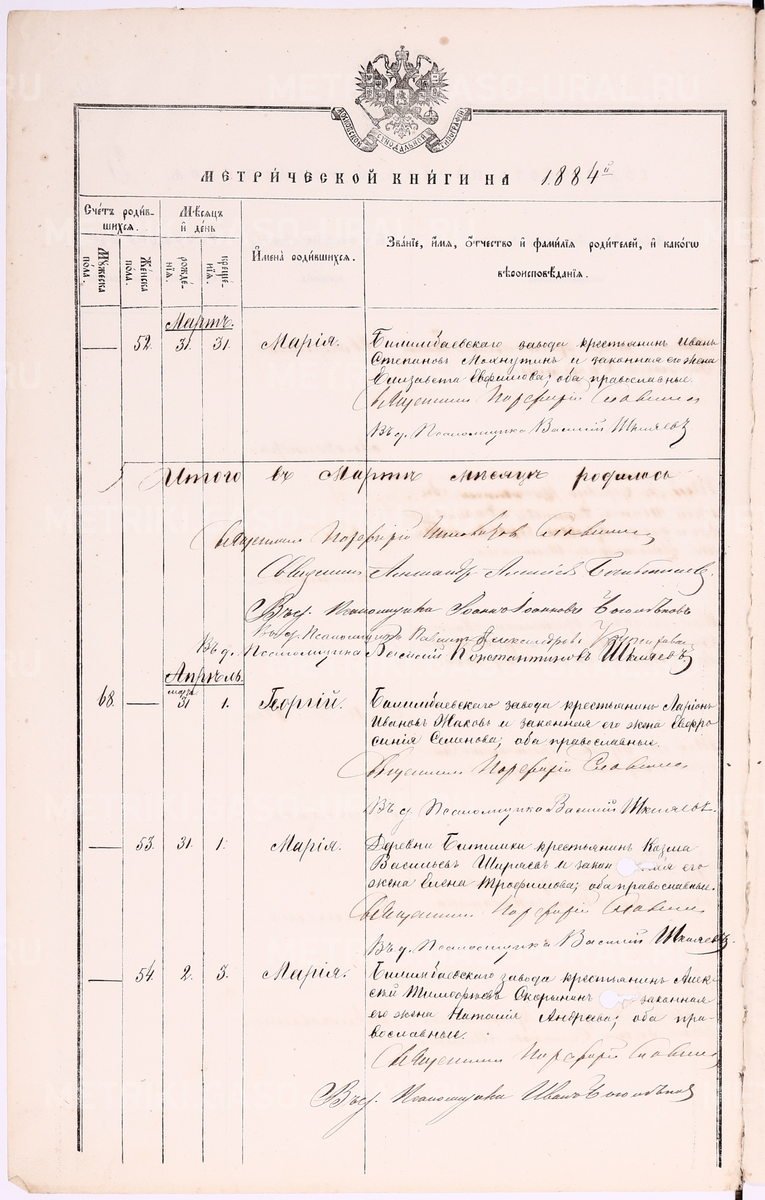 МОСКОВСКОЙ СѴНОДАЛЬНОЙ ТИПОГРАФІИ
МЕТРИ́ЧЕСКОЙ КНИ́ГИ НА 1884й
Сче́тъ роди́вшихся.
Мѣ́сяцъ и҆ де́нь
И҆мена̀ роди́вшихся.
Зва́нїе, и҆́мя, ѻ҆́тчество и҆ фами́лїя роди́телей, и҆ како́гѡ вѣроисповѣ́данїя.
Мꙋ́жеска по́ла.
Же́нска по́ла.
рожде́нїя.
креще́нїя.
Мартъ.
52. 31. 31. Марія. Билимбаевскаго завода крестьянинъ Иванъ
Степановъ и законная его жена
Елизавета Евфимова; оба православные.
Священникъ Порфирій Славнинъ
Въ д. Псаломщика Василій Шкляевъ
Итого въ Мартѣ мѣсяцѣ родилось
Священникъ Порфирій Славнинъ
Священникъ Александръ Алексѣевъ
Въ д. Псаломщика Іоаннъ Іоанновъ Боголѣповъ
Въ д. Псаломщика Павелъ Александровъ
Въ д. Псаломщика Василій Константиновъ Шкляевъ
Апрѣль.
68. марта 31 1. Георгій. Билимбаевскаго завода крестьянинъ Ларіонъ
Ивановъ Жаковъ и законная его жена Евфро-
синія Семенова; оба православные.
Священникъ Порфирій Славнинъ
Въ д. Псаломщика Василій Шкляевъ.
53. 31. 1. Марія. Деревни Битимки крестьянинъ Козма
Васильевъ Ширяевъ и закон ая его
жена Елена Трофимова; оба православные.
Священникъ Порфирій Славнинъ
Въ д. Псаломщика Василій Шкляевъ.
54. 2. 3. Марія. Билимбаевскаго завода крестьянинъ Алек-
сѣй Тимофѣевъ Скорынинъ законная
его жена Наталія Андреева; оба пра-
вославные.
Священникъ Порфирій Славнинъ
Въ д. Псаломщика Иванъ Боголѣповъ